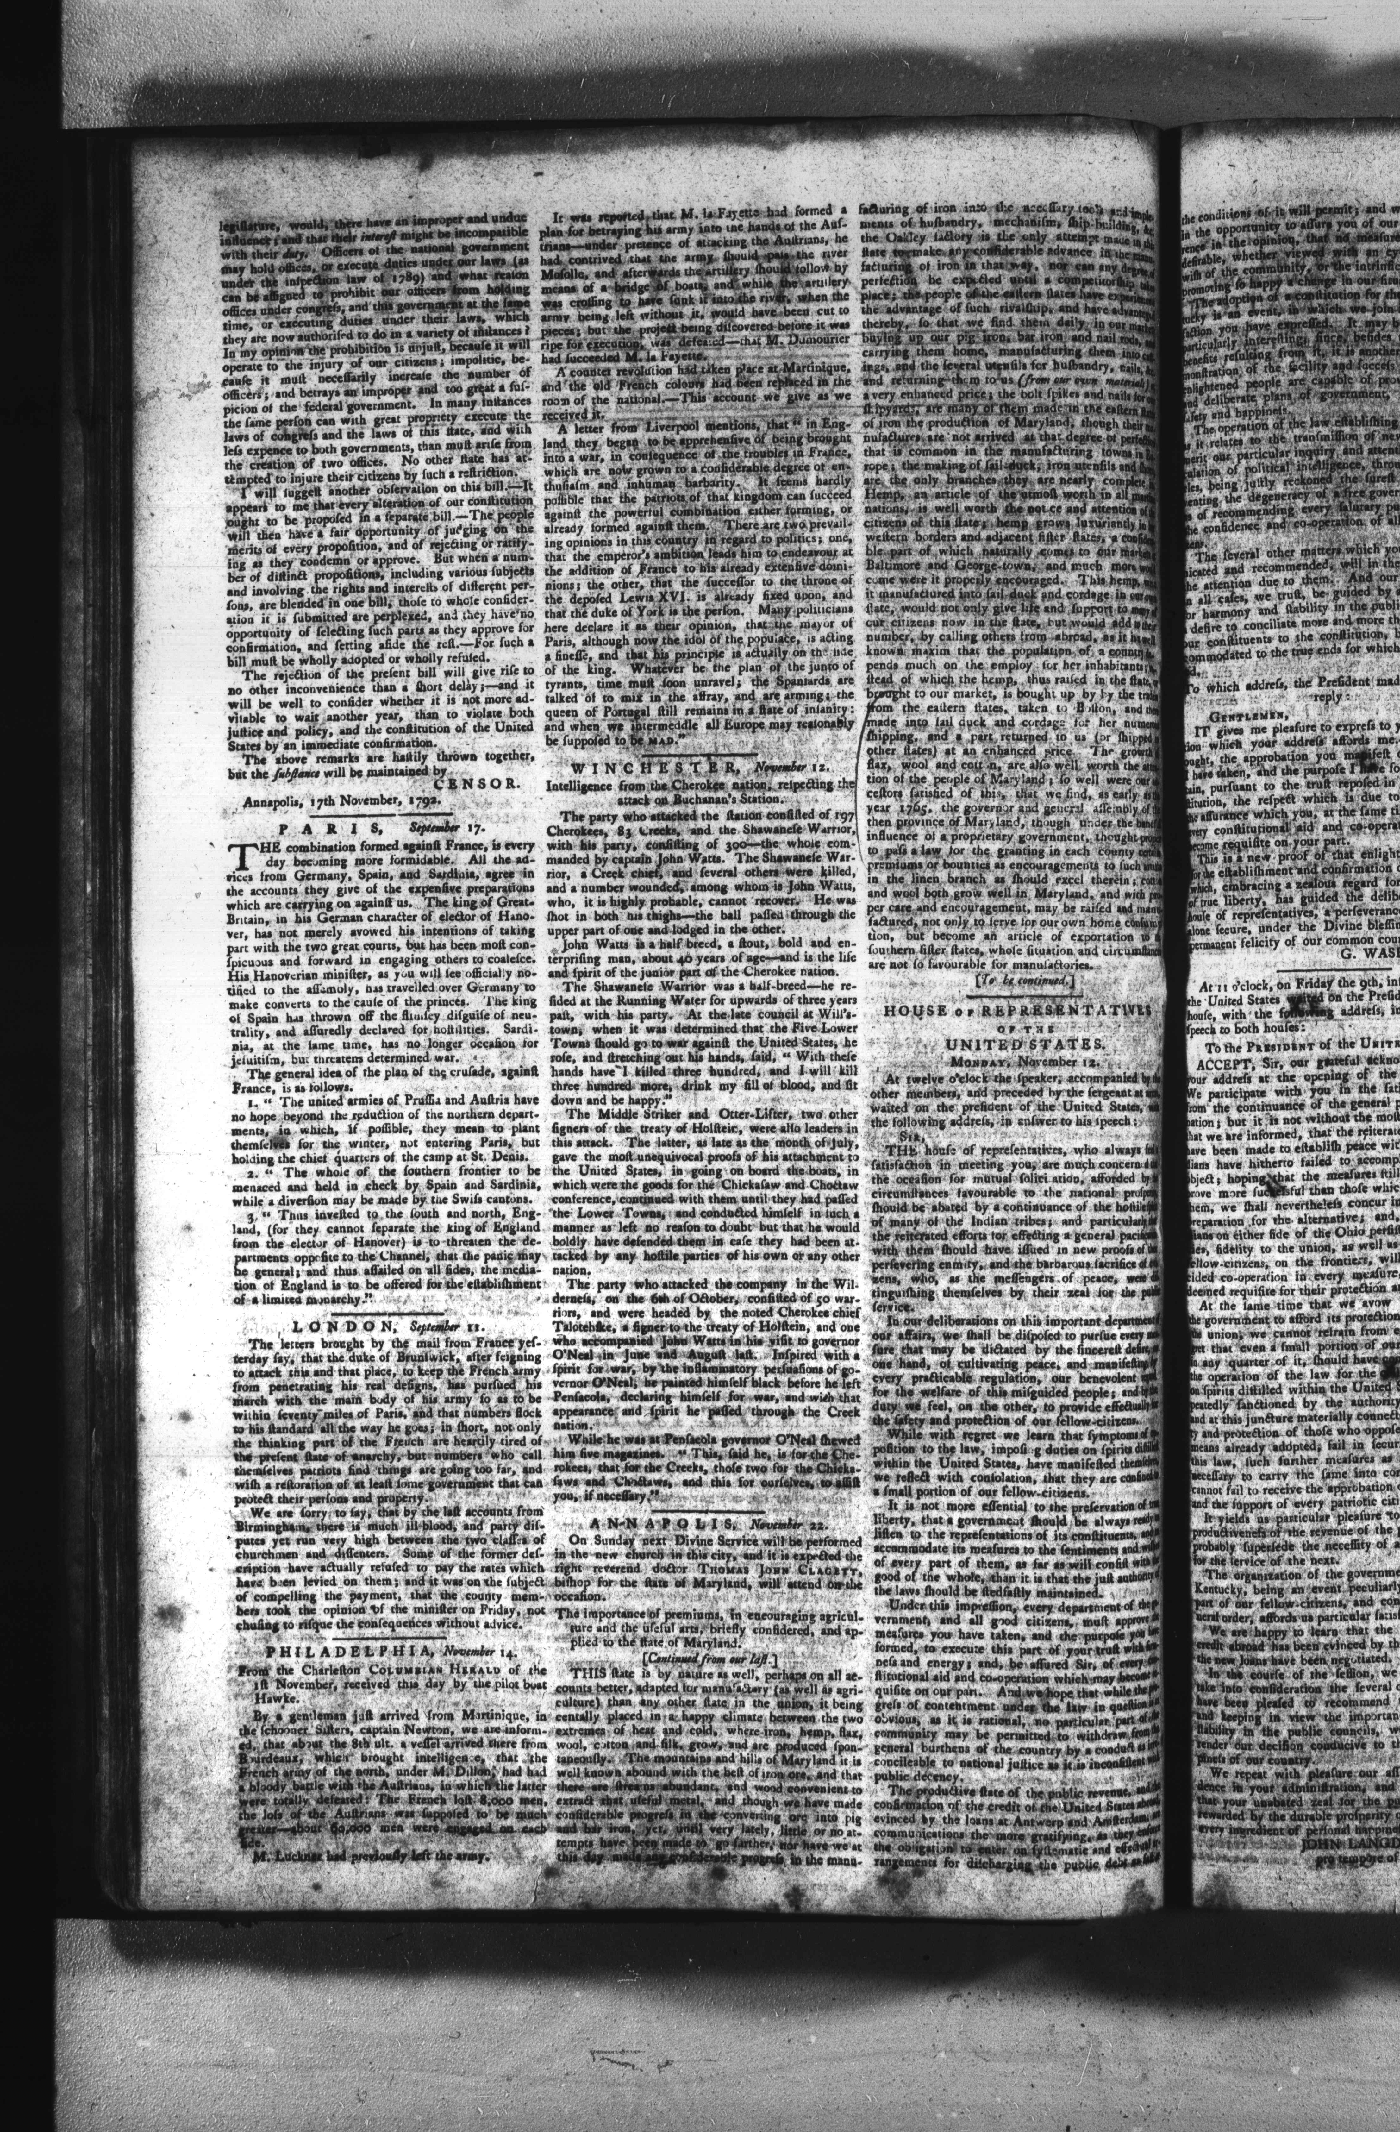 legislature, would, there have an improper and undue
influence; and that their interest might be incompatible
with their duty. Officers of the national government
may hold offices, or execute duties under our laws (as
under the inspection law of 1789) and what reason
can be assigned to prohibit our officers from holding
offices under congress, and this government at the same
time, or executing duties under their laws, which
they are now authorised to do in a variety of instances?
In my opinion the prohibition is unjust, because it will
operate to the injury of our citizens; impolitic, be-
cause it must necessarily increase the number of
officers; and betrays an improper and too great a sus-
picion of the federal government. In many instances
the same person can with great propriety execute the
laws of congress and the laws of this state, and with
less expence to both governments, than must arise from
the creation of two offices. No other state has at-
tempted to injure their citizens by such a restriction.
I will suggest another observation on this bill.—It
appears to me that every alteration of our constitution
ought to be proposed in a separate bill.—The people
will then have a fair opportunity of judging on the
merits of every proposition, and of rejecting or ratify-
ing as they condemn or approve. But when a num-
ber of distinct propositions, including various subjects
and involving the rights and interests of different per-
sons, are blended in one bill, those to whose consider-
ation it is submitted are perplexed, and they have no
opportunity of selecting such parts as they approve for
confirmation, and setting aside the rest.—For such a
bill must be wholly adopted or wholly refused.
The rejection of the present bill will give rise to
no other inconvenience than a short delay;—and it
will be well to consider whether it is not more ad-
visable to wait another year, than to violate both
justice and policy, and the constitution of the United
States by an immediate confirmation.
The above remarks are hastily thrown together,
but the substance will be maintained by
CENSOR.
Annapolis, 17th November, 1792.
PARIS, September 17.
THE combination formed against France, is every
day becoming more formidable. All the ad-
vices from Germany, Spain, and Sardinia, agree in
the accounts they give of the expensive preparations
which are carrying on against us. The king of Great-
Britain, in his German character of elector of Hano-
ver, has not merely avowed his intentions of taking
part with the two great courts, but has been most con-
spicuous and forward in engaging others to coalesce.
His Hanoverian minister, as you will see officially no-
tified to the assembly, has travelled over Germany to
make converts to the cause of the princes. The king
of Spain has thrown off the flimsey disguise of neu-
trality, and assuredly declared for hostilities. Sardi-
nia, at the same time, has no longer occasion for
jesuitism, but threatens determined war.
The general idea of the plan of the crusade, against
France, is as follows.
1. " The united armies of Prussia and Austria have
no hope beyond the reduction of the northern depart-
ments, in which, if possible, they mean to plant
themselves for the winter, not entering Paris, but
holding the chief quarters of the camp at St. Denis.
2. " The whole of the southern frontier to be
menaced and held in check by Spain and Sardinia,
while a diversion may be made by the Swiss cantons.
3. " Thus invested to the south and north, Eng-
land, (for they cannot separate the king of England
from the elector of Hanover) is to threaten the de-
partments opposite to the Channel, that the panic may
be general; and thus assailed on all sides, the media-
tion of England is to be offered for the establishment
of a limited monarchy."
LONDON, September 11.
The letters brought by the mail from France yes-
terday say, that the duke of Brunswick, after feigning
to attack this and that place, to keep the French army
from penetrating his real designs, has pursued his
march with the main body of his army so as to be
within seventy miles of Paris, and that numbers flock
to his standard all the way he goes; in short, not only
the thinking part of the French are heartily tired of
the present state of anarchy, but numbers who call
themselves patriots find things are going too far, and
wish a restoration of at least some government that can
protect their persons and property.
We are sorry to say, that by the last accounts from
Birmingham, there is much ill-blood, and party dis-
putes yet run very high between the two classes of
churchmen and dissenters. Some of the former des-
cription have actually refused to pay the rates which
have been levied on them; and it was on the subject
of compelling the payment, that the county mem-
bers took the opinion of the minister on Friday, not
chusing to risque the consequences without advice.
PHILADELPHIA, November 14.
From the Charleston COLUMBIAN HERALD of the
1st November, received this day by the pilot boat
Hawke.
By a gentleman just arrived from Martinique, in
the schooner Sisters, captain Newton, we are inform-
ed, that about the 8th ult. a vessel arrived there from
Bourdeaux, which brought intelligence, that the
French army of the north, under M. Dillon, had had
a bloody battle with the Austrians, in which the latter
were totally defeated: The French lost 8,000 men,
the loss of the Austrians was supposed to be much
greater—about 60,000 men were engaged on each
side.
M. Luckner had previously left the army.
It was reported that M. la Fayette had formed a
plan for betraying his army into the hands of the Aus-
trians—under pretence of attacking the Austrians, he
had contrived that the army should pass the river
Mosolle, and afterwards the artillery should follow by
means of a bridge of boats, and while the artillery
was crossing to have sunk it into the river, when the
army being left without it, would have been cut to
pieces; but the project being discovered before it was
ripe for execution, was defeated—that M. Dumourier
had succeeded M. la Fayette.
A counter revolution had taken place at Martinique,
and the old French colours had been replaced in the
room of the national.—This account we give as we
received it.
A letter from Liverpool mentions, that " in Eng-
land they began to be apprehensive of being brought
into a war, in consequence of the troubles in France,
which are now grown to a considerable degree of en-
thusiasm and inhuman barbarity. It seems hardly
possible that the patriots of that kingdom can succeed
against the powerful combination either forming, or
already formed against them. There are two prevail-
ing opinions in this country in regard to politics; one,
that the emperor's ambition leads him to endeavour at
the addition of France to his already extensive domi-
nions; the other, that the successor to the throne of
the deposed Lewis XVI. is already fixed upon, and
that the duke of York is the person. Many politicians
here declare it as their opinion, that the mayor of
Paris, although now the idol of the populace, is acting
a finesse, and that his principle is actually on the side
of the king. Whatever be the plan of the junto of
tyrants, time must soon unravel; the Spaniards are
talked of to mix in the affray, and are arming; the
queen of Portugal still remains in a state of insanity:
and when we intermeddle all Europe may reasonably
be supposed to be MAD."
WINCHESTER, November 12.
Intelligence from the Cherokee nation, respecting the
attack on Buchanan's Station.
The party who attacked the station consisted of 197
Cherokees, 83 Creeks, and the Shawanese Warrior,
with his party, consisting of 300—the whole com-
manded by captain John Watts. The Shawanese War-
rior, a Creek chief, and several others were killed,
and a number wounded, among whom is John Watts,
who, it is highly probable, cannot recover. He was
shot in both his thighs—the ball passed through the
upper part of one and lodged in the other.
John Watts is a half breed, a stout, bold and en-
terprising man, about 40 years of age—and is the life
and spirit of the junior part of the Cherokee nation.
The Shawanese Warrior was a half-breed—he re-
sided at the Running Water for upwards of three years
past, with his party. At the late council at Will's-
town, when it was determined that the Five Lower
Towns should go to war against the United States, he
rose, and stretching out his hands, said, " With these
hands have I killed three hundred, and I will kill
three hundred more, drink my fill of blood, and sit
down and be happy."
The Middle Striker and Otter-Lifter, two other
signers of the treaty of Holsteic, were also leaders in
this attack. The latter, as late as the month of July,
gave the most unequivocal proofs of his attachment to
the United States, in going on board the boats, in
which were the goods for the Chickasaw and Choctaw
conference, continued with them until they had passed
the Lower Towns, and conducted himself in such a
manner as left no reason to doubt but that he would
boldly have defended them in case they had been at-
tacked by any hostile parties of his own or any other
nation.
The party who attacked the company in the Wil-
derness, on the 6th of October, consisted of 50 war-
riors, and were headed by the noted Cherokee chief
Talotehske, a signer to the treaty of Holstein, and one
who accompanied John Watts in his visit to governor
O'Neal in June and August last. Inspired with a
spirit for war, by the inflammatory persuasions of go-
vernor O'Neal, he painted himself black before he left
Pensacola, declaring himself for war, and with that
appearance and spirit he passed through the Creek
nation.
While he was at Pensacola governor O'Neal shewed
him five magazines. " This, said he, is for the Che-
rokees, that for the Creeks, those two for the Chicka-
saws and Choctaws, and this for ourselves, to assist
you, if necessary."
ANNAPOLIS, November 22.
On Sunday next Divine Service will be performed
in the new church in this city, and it is expected the
right reverend doctor THOMAS JOHN CLAGETT,
bishop for the state of Maryland, will attend on the
occasion.
The importance of premiums, in encouraging agricul-
ture and the useful arts, briefly considered, and ap-
plied to the state of Maryland.
[Continued from our last.]
THIS state is by nature as well, perhaps on all ac-
counts better, adapted for manufactory (as well as agri-
culture) than any other state in the union, it being
centally placed in a happy climate between the two
extremes of heat and cold, where iron, hemp, flax,
wool, cotton and silk, grow, and are produced spon-
taneously. The mountains and hills of Maryland it is
well known abound with the best of iron ore, and that
there are streams abundant, and wood convenient to
extract that useful metal, and though we have made
considerable progress in the converting ore into pig
and bar iron, yet, until very lately, little or no at-
tempts have been made to go farther, nor have we at
this day made any considerable progress in the manu-
facturing of iron into the necessary tools and imple-
ments of husbandry, mechanism, ship-building, &c.
the Oakley factory is the only attempt made in the
state to make any considerable advance in the manu-
facturing of iron in that way, nor can any degree of
perfection be expected until a competitorship take
place; the people of the eastern states have experienced
the advantage of such rivalship, and have advanced
thereby, so that we find them daily, in our markets
buying up our pig iron, bar iron and nail rods, and
carrying them home, manufacturing them into cast-
ings, and the several utensils for husbandry, nails, &c.
and returning them to us (from our own materials) at
a very enhanced price; the bolt spikes and nails for our
shipyards, are many of them made in the eastern states
of iron the production of Maryland, though their ma-
nufactures are not arrived at that degree of perfection
that is common in the manufacturing towns in Eu-
rope; the making of sail-duck, iron utensils and
are the only branches they are nearly complete in.
Hemp, an article of the utmost worth in all maritime
nations, is well worth the notice and attention of the
citizens of this state; hemp grows luxuriantly in our
western borders and adjacent sister states, a considera-
ble part of which naturally comes to our markets
Baltimore and George-town, and much more would
come were it properly encouraged. This hemp, was
it manufactured into sail duck and cordage in our own
state, would not only give life and support to many of
our citizens now in the state, but would add to their
number, by calling others from abroad, as it is a well
known maxim that the population of a country de-
pends much on the employ for her inhabitants; in-
stead of which the hemp, thus raised in the state, or
brought to our market, is bought up by by the traders
from the eastern states, taken to Boston, and then
made into sail duck and cordage for her numerous
shipping, and a part returned to us (or shipped to
other states) at an enhanced price. The growth of
flax, wool and cotton, are also well worth the atten-
tion of the people of Maryland; so well were our an-
cestors satisfied of this, that we find, as early as the
year 1765, the governor and general assembly of the
then province of Maryland, though under the baneful
influence of a proprietary government, thought proper
to pass a law for the granting in each county certain
premiums or bounties as encouragements to such
in the linen branch as should excel therein; cotton
and wool both grow well in Maryland, and with pro-
per care and encouragement, may be raised and manu-
factured, not only to serve for our own home consump-
tion, but become an article of exportation to our
southern sister states, whose situation and circumstances
are not so favourable for manufactories.
[To be continued.]
HOUSE OF REPRESENTATIVES
OF THE
UNITED STATES.
MONDAY, November 12.
At twelve o'clock the speaker, accompanied by the
other members, and preceded by the sergeant at arms,
waited on the president of the United States, with
the following address, in answer to his speech:
SIR,
THE house of representatives, who always feel
satisfaction in meeting you, are much concerned
the occasion for mutual felicitation, afforded by
circumstances favourable to the national prosperity,
should be abated by a continuance of the hostilities
of many of the Indian tribes; and particularly
the reiterated efforts for effecting a general pacification
with them should have issued in new proofs of their
persevering enmity, and the barbarous sacrifice of citi-
zens, who, as the messengers of peace, were dis-
tinguishing themselves by their zeal for the public
service.
In our deliberations on this important department of
our affairs, we shall be disposed to pursue every mea-
sure that may be dictated by the sincerest desire, on
one hand, of cultivating peace, and manifesting by
every practicable regulation, our benevolent regard
for the welfare of this misguided people; and by the
duty we feel, on the other, to provide effectually for
the safety and protection of our fellow-citizens.
While with regret we learn that symptoms of op-
position to the law, imposing duties on spirits distilled
within the United States, have manifested themselves,
we reflect with consolation, that they are confined to
a small portion of our fellow-citizens.
It is not more essential to the preservation of true
liberty, that a government should be always ready to
listen to the representations of its constituents, and to
accommodate its measures to the sentiments and wishes
of every part of them, as far as will consist with the
good of the whole, than it is that the just authority of
the laws should be stedfastly maintained.
Under this impression, every department of the go-
vernment, and all good citizens, must approve the
measures you have taken, and the purpose you have
formed, to execute this part of your trust with firm-
ness and energy; and, be assured Sir, of every con-
stitutional aid and co-operation which may become re-
quisite on our part. And we hope that while the pro-
gress of contentment under the law in question is as
obvious, as it is rational, no particular part of the
community may be permitted to withdraw from the
general burthens of the country by a conduct as irre-
concileable to national justice as it is inconsistent with
public decency.
The productive state of the public revenue, and the
confirmation of the credit of the United States abroad,
evinced by the loans at Antwerp and Amsterdam, are
communications the more gratifying, as they enforce
the obligation to enter on systematic and effectual ar-
rangements for discharging the public debt as fast
the conditions of it will permit; and w
in the opportunity to assure you of our
rence in the opinion, that no measure
desirable, whether viewed with an ey
wish of the community, or the intrinsi
promoting so happy a change in our situ
The adoption of a constitution for the
tucky is an event, in which we join
faction you have expressed. It may
particularly interesting; since, besides
benefits resulting from it, it is another
monstration of the facility and success
enlightened people are capable of pro
and deliberate plans of government,
safety and happiness.
The operation of the law establishing
it relates to the transmission of ne
merit our particular inquiry and attent
culation of political intelligence, throu
les, being justly reckoned the surest
enting the degeneracy of a free gove
of recommending every salutary pu
the confidence and co-operation of all
zens.
The several other matters which you
nicated and recommended, will in the
the attention due to them. And our
in all cases, we trust, be guided by a
for harmony and stability in the publi
desire to conciliate more and more th
our constituents to the constitution,
commodated to the true ends for which
ed.
To which address, the President mad
reply:
GENTLEMEN,
IT gives me pleasure to express to y
tion which your address affords me.
ought, the approbation you manifest
I have taken, and the purpose I have fo
tain, pursuant to the trust reposed in
stitution, the respect which is due to
the assurance which you, at the same ti
very constitutional aid and co-operat
become requisite on your part.
This is a new proof of that enlight
for the establishment and confirmation o
which, embracing a zealous regard for
of true liberty, has guided the delibe
house of representatives, a perseverance
alone secure, under the Divine blessin
permanent felicity of our common coun
G. WASH
At 11 o'clock, on Friday the 9th, in
the United States waited on the Presid
house, with the following address, in
speech to both houses:
To the PRESIDENT of the UNITE
ACCEPT, Sir, our grateful ackno
your address at the opening of the
We participate with you in the sati
from the continuance of the general p
nation; but it is not without the most
that we are informed, that the reiterate
have been made to establish peace with
dians have hitherto failed to accomp
object; hoping that the measures still
prove more successful than those whic
them, we shall nevertheless concur in
preparation for the alternative; and,
dians on either side of the Ohio persist
les, fidelity to the union, as well as
fellow-citizens, on the frontiers, will
cided co-operation in every measure,
deemed requisite for their protection an
At the same time that we avow
the government to afford its protection
the union, we cannot refrain from
get that even a small portion of our
in any quarter of it, should have
the operation of the law for the
on spirits distilled within the United
peatedly sanctioned by the authority
and at this juncture materially connect
ty and protection of those who oppose
means already adopted, fail in securi
this law, such further measures as
necessary to carry the same into com
cannot fail to receive the approbation o
and the support of every patriotic citi
It yields us particular pleasure to
productiveness of the revenue of the pr
probably supersede the necessity of a
for the service of the next.
The organization of the governme
Kentucky, being an event peculiarl
part of our fellow-citizens, and con
neral order, affords us particular satis
We are happy to learn that the
credit abroad has been evinced by the
the new loans have been negotiated.
In the course of the session, we
take into consideration the several o
have been pleased to recommend
and keeping in view the importan
stability in the public councils, we
render our decision conducive to th
piness of our country.
We repeat with pleasure our ass
dence in your administration, and
that your unabated zeal for the pu
rewarded by the durable prosperity o
every ingredient of personal happiness
JOHN LANGD
pro tempore of